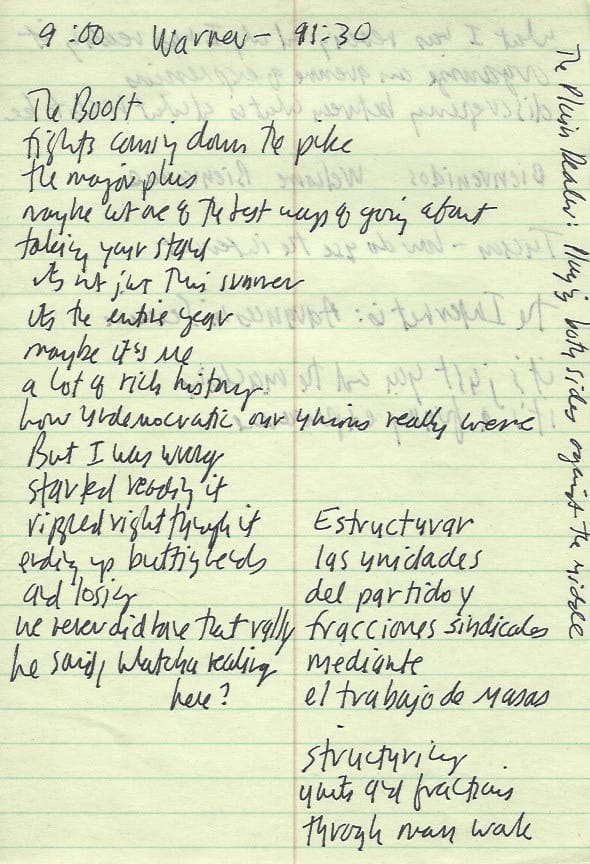 9:00 Warner - 91-30
The Boost
fights coming down the pike
the major plus
maybe not one of the best ways of going about
taking your stand
its not just this summer
its the entire year
maybe it's me
a lot of rich history
how undemocratic our unions really were
But I was wrong
started reading it
rippled right through it
ending up butting heads
and losing
we never did have that rally
he said, watcha reading
here?
Estructurar
las unidades
del partido y
fracciones sindicales
mediante
el trabajo de masas
structuring
units and fractions
through mass work
The Plain Dealer: Playing both sides against the middle